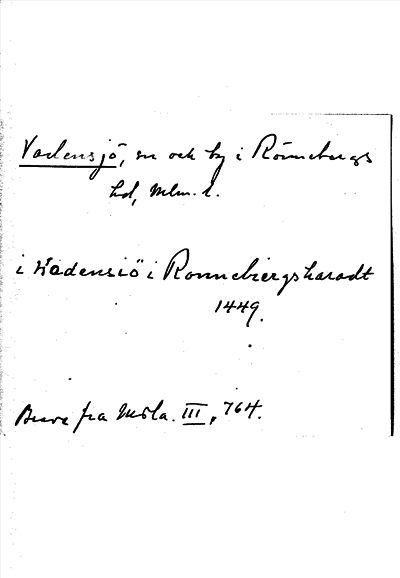 Vadensjö, sn och by i Rönnebergs
hd, Mlm. l.
i Vadensiö i Ronnebiergsharadt
1449.
fra Msla. III, 764.